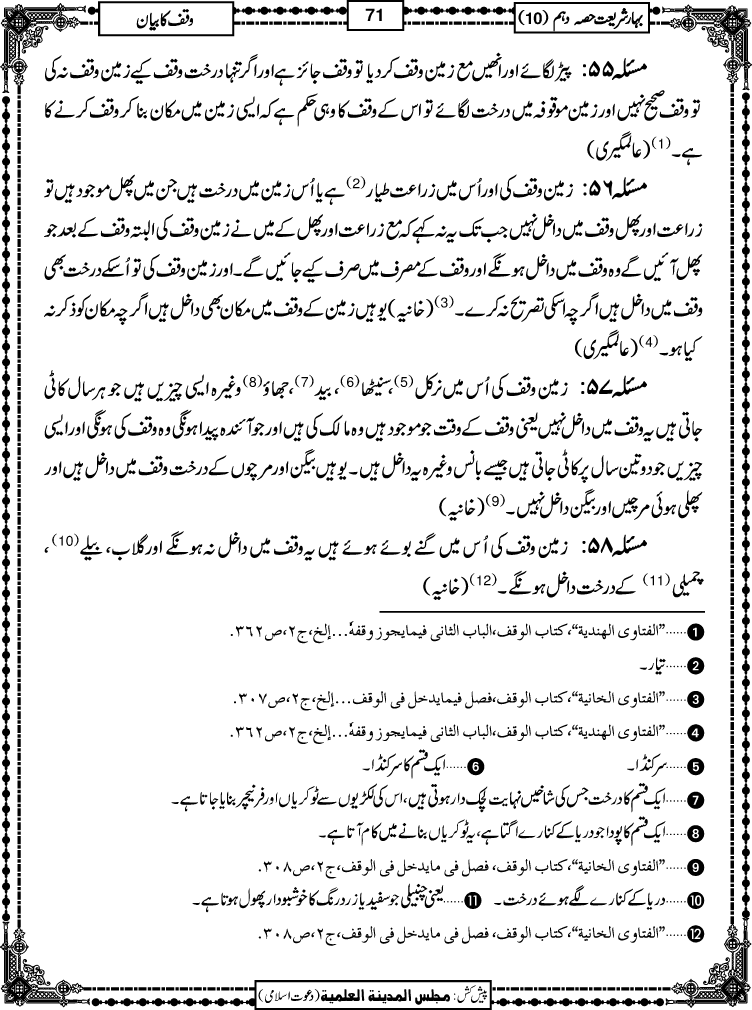 بہارشریعت حصہ دہم (10)
71
وقف کا بیان
مسئلہ ۵۵: پیڑ لگائے اور انھیں مع زمین وقف کردیا تو وقف جائز ہے اور اگر تنہا درخت وقف کیے زمین وقف نہ کی
تو وقف صحیح نہیں اور زمین موقوفہ میں درخت لگائے تو اس کے وقف کا وہی حکم ہے کہ ایسی زمین میں مکان بنا کر وقف کرنے کا
ہے۔(1) (عالمگیری)
مسئلہ ۵۶: زمین وقف کی اور اُس میں زراعت طیار(2) ہے یا اُس زمین میں درخت ہیں جن میں پھل موجود ہیں تو
زراعت اور پھل وقف میں داخل نہیں جب تک یہ نہ کہے کہ مع زراعت اور پھل کے میں نے زمین وقف کی البتہ وقف کے بعد جو
پھل آئیں گے وہ وقف میں داخل ہونگے اور وقف کے مصرف میں صرف کیے جائیں گے۔ اور زمین وقف کی تو اُسکے درخت بھی
وقف میں داخل ہیں اگرچہ اسکی تصریح نہ کرے۔(3) (خانیہ) یوہیں زمین کے وقف میں مکان بھی داخل ہیں اگرچہ مکان کو ذکر نہ
کیا ہو۔(4) (عالمگیری)
مسئلہ ۵۷: زمین وقف کی اُس میں نرکل(5)، سنیٹھا(6)، بید(7)، جھاؤ(8) وغیرہ ایسی چیزیں ہیں جو ہر سال کاٹی
جاتی ہیں یہ وقف میں داخل نہیں یعنی وقف کے وقت جو موجود ہیں وہ مالک کی ہیں اور جو آئندہ پیدا ہونگی وہ وقف کی ہونگی اور ایسی
چیزیں جو دو تین سال پر کاٹی جاتی ہیں جیسے بانس وغیرہ یہ داخل ہیں۔ یوہیں بیگن اور مرچوں کے درخت وقف میں داخل ہیں اور
پھلی ہوئی مرچیں اور بیگن داخل نہیں۔(9) (خانیہ)
مسئلہ ۵۸: زمین وقف کی اُس میں گنے بوئے ہوئے ہیں یہ وقف میں داخل نہ ہونگے اور گلاب، بیلے(10)،
چمیلی(11) کے درخت داخل ہونگے۔(12) (خانیہ)
1......"الفتاوی الھندیة"، کتاب الوقف، الباب الثانی فیمایجوز وقفہٗ...إلخ، ج۲، ص۳۶۲.
2......تیار۔
3......"الفتاوی الخانیة"، کتاب الوقف، فصل فیمایدخل فی الوقف...إلخ، ج۲، ص۳۰۷.
4......"الفتاوی الھندیة"، کتاب الوقف، الباب الثانی فیمایجوز وقفہٗ...إلخ، ج۲، ص۳۶۲.
5......سرکنڈا۔ 6......ایک قسم کا سرکنڈا۔
7......ایک قسم کا درخت جس کی شاخیں نہایت لچک دار ہوتی ہیں، اس کی لکڑیوں سے ٹوکریاں اور فرنیچر بنایا جاتا ہے۔
8......ایک قسم کا پودا جو دریا کے کنارے اگتا ہے، یہ ٹوکریاں بنانے میں کام آتا ہے۔
9......"الفتاوی الخانیة"، کتاب الوقف، فصل فی مایدخل فی الوقف، ج۲، ص۳۰۸.
10......دریا کے کنارے لگے ہوئے درخت۔ 11......یعنی چنبیلی جو سفید یا زرد رنگ کا خوشبودار پھول ہوتا ہے۔
12......"الفتاوی الخانیة"، کتاب الوقف، فصل فی مایدخل فی الوقف، ج۲، ص۳۰۸.
پیش کش: مجلس المدینة العلمیة (دعوت اسلامی)